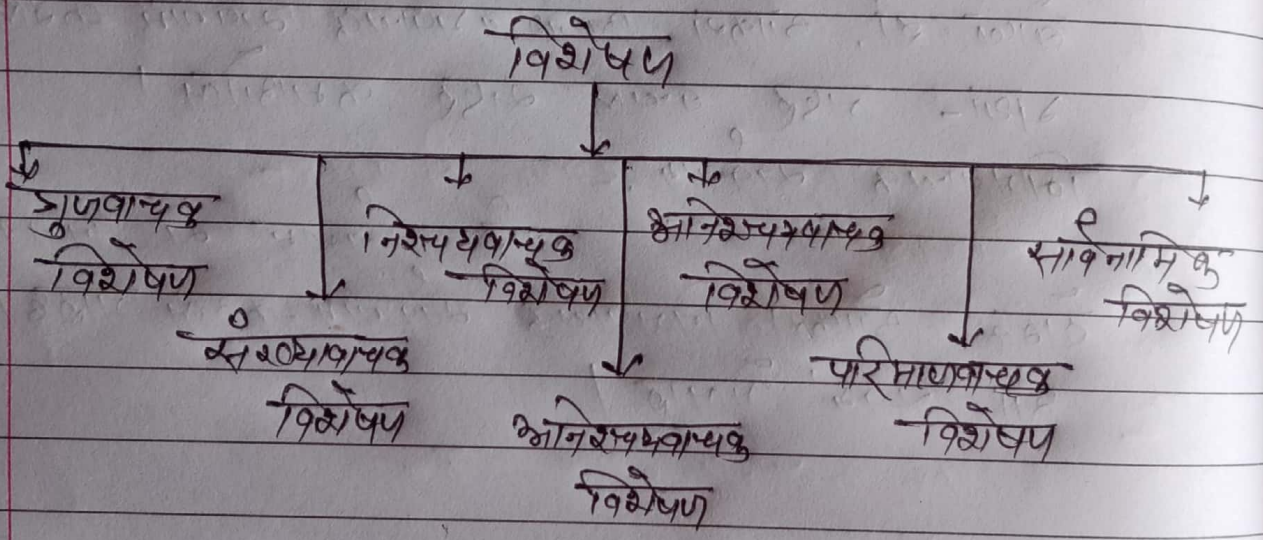 विशेषण
गुणवाचक
विशेषण
संख्यावाचक
विशेषण
निश्चयवाचक
विशेषण
अनिश्चयवाचक
विशेषण
अनिश्चयवाचक
विशेषण
परिमाणवाचक
विशेषण
सार्वनामिक
विशेषण